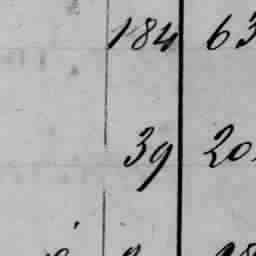 184 63
39 20